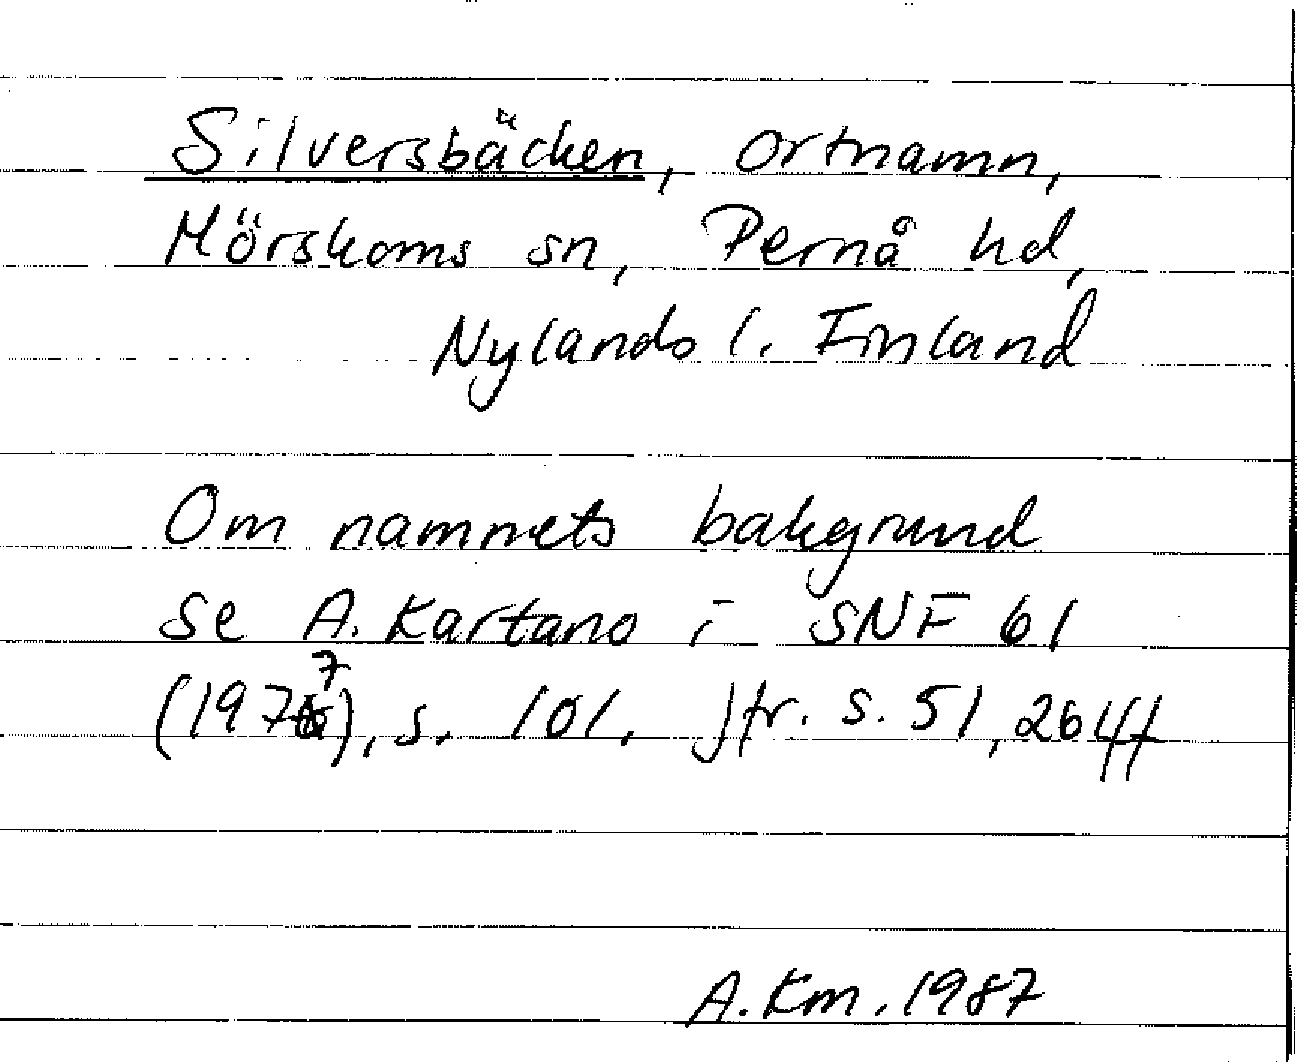 Silversbäcken, ortnamn,
Mörskoms sn, Pernå hd,
Nylands l. Finland
Om namnets bakgrund
se A. Kartano i SNF 61
(1977), s. 101. Jfr. s. 51, 264ff
A.Km. 1987